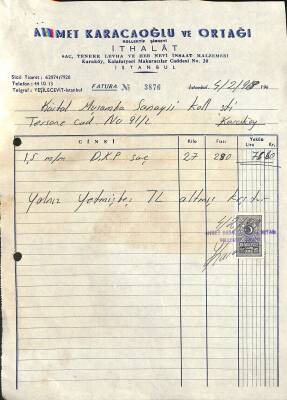 AHMET KARACAOĞLU VE ORTAĞI
KOLLEKTİF ŞİRKETİ
İTHALÂT
SAÇ, TENEKE LEVHA VE HER NEVİ İNŞAAT MALZEMESİ
Karaköy, Kalafatyeri Makaracılar Caddesi No. 20
İSTANBUL
Sicil Ticaret : 62874/7920
Telefon : 44 10 13
Telgraf : YEŞİLCEVAT-İstanbul
FATURA № 3876
İstanbul 4/2/19
Muşamba Sanayii Koll şti
Tersane Cad No 91/2 Karaköy
CİNSİ Kilo Fiatı Yekûn
Lira Kr.
1,5 m/m D.K.P saç 27 280 75 60
Yalnız Yetmişbeş TL altmış krştur
5